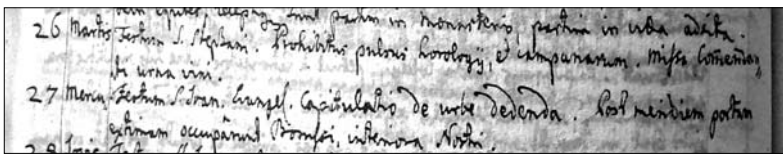 dem equites, sunt partim in monasterio, partim in urbe
26 Martis Festum S. Stephani. Prohibitus pulsus horologij, et campanarum. Missa Comendan„
de urna vini.
27 Mercu Festum S. Joan. Evangel. Capitulatio de urbe dedenda. Post meridiem portam
extimam occupârunt Borussi, interiora Nostri.
28